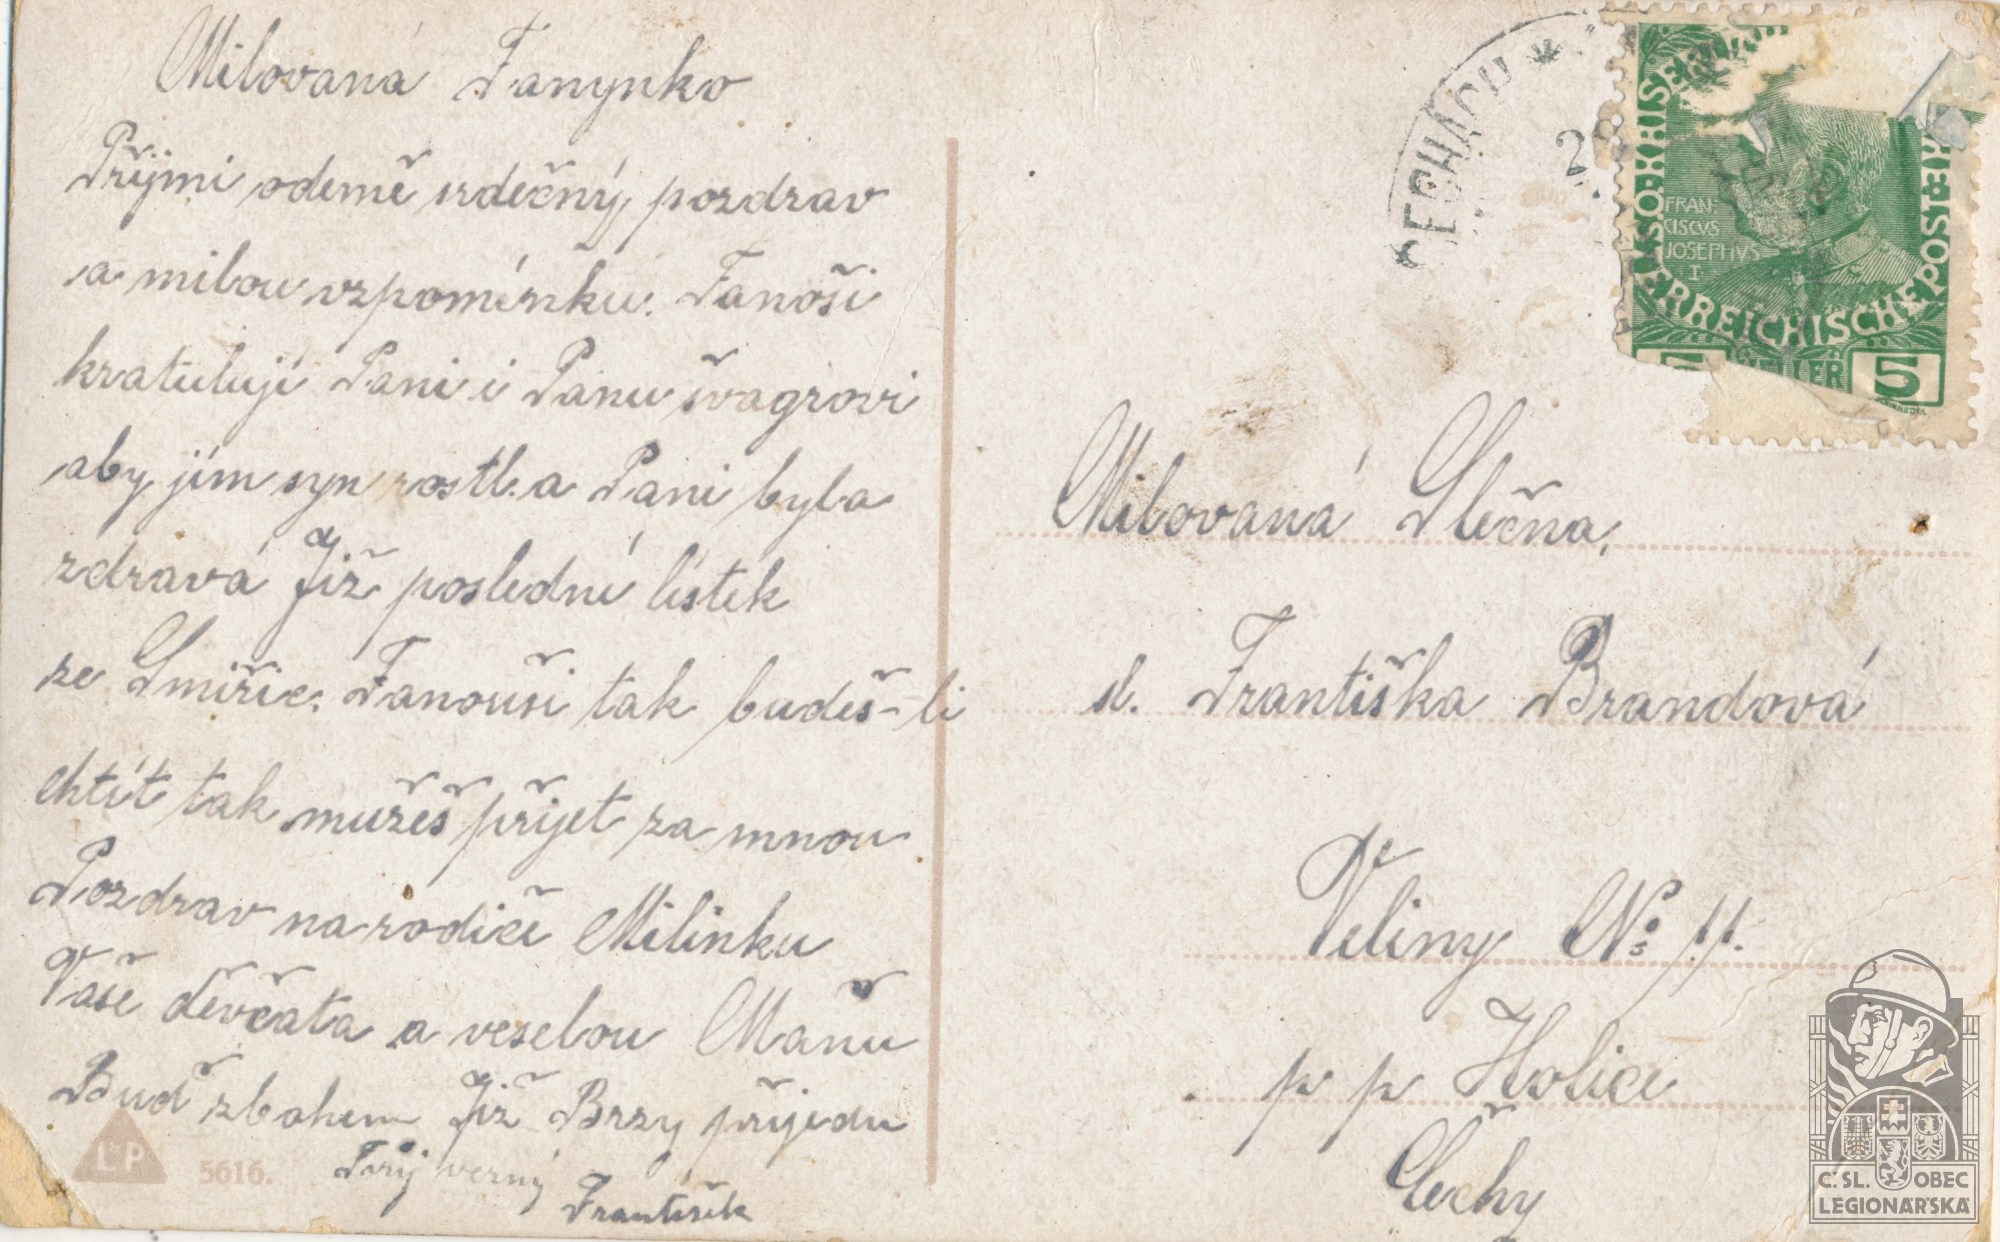 Milovaná Fanynko
Přijmi odemě srdečný pozdrav
a milou vzpomínku. Fanoši
kratulují Pani i Panu švagrovi
aby jím syn rostl a Pani byla
zdravá Již poslední lístek
ze Smiřic. Fanouši tak budeš-li
chtít tak mužeš přijet za mnou
Pozdrav na rodiče Milinku
Vaše děvčata a veselou Mañu
Buď zbohem Již Brzy přijedu
Tvůj verný
František
L&P
5616.
ECHÁCH
FRAN-
CISCVS
JOSEPHVS
I
POST
5
Milovaná Slečna,
sl. Františka Brandová
Veliny No 11.
p p Holice
Čechy
Č. SL. OBEC
LEGIONÁŘSKÁ